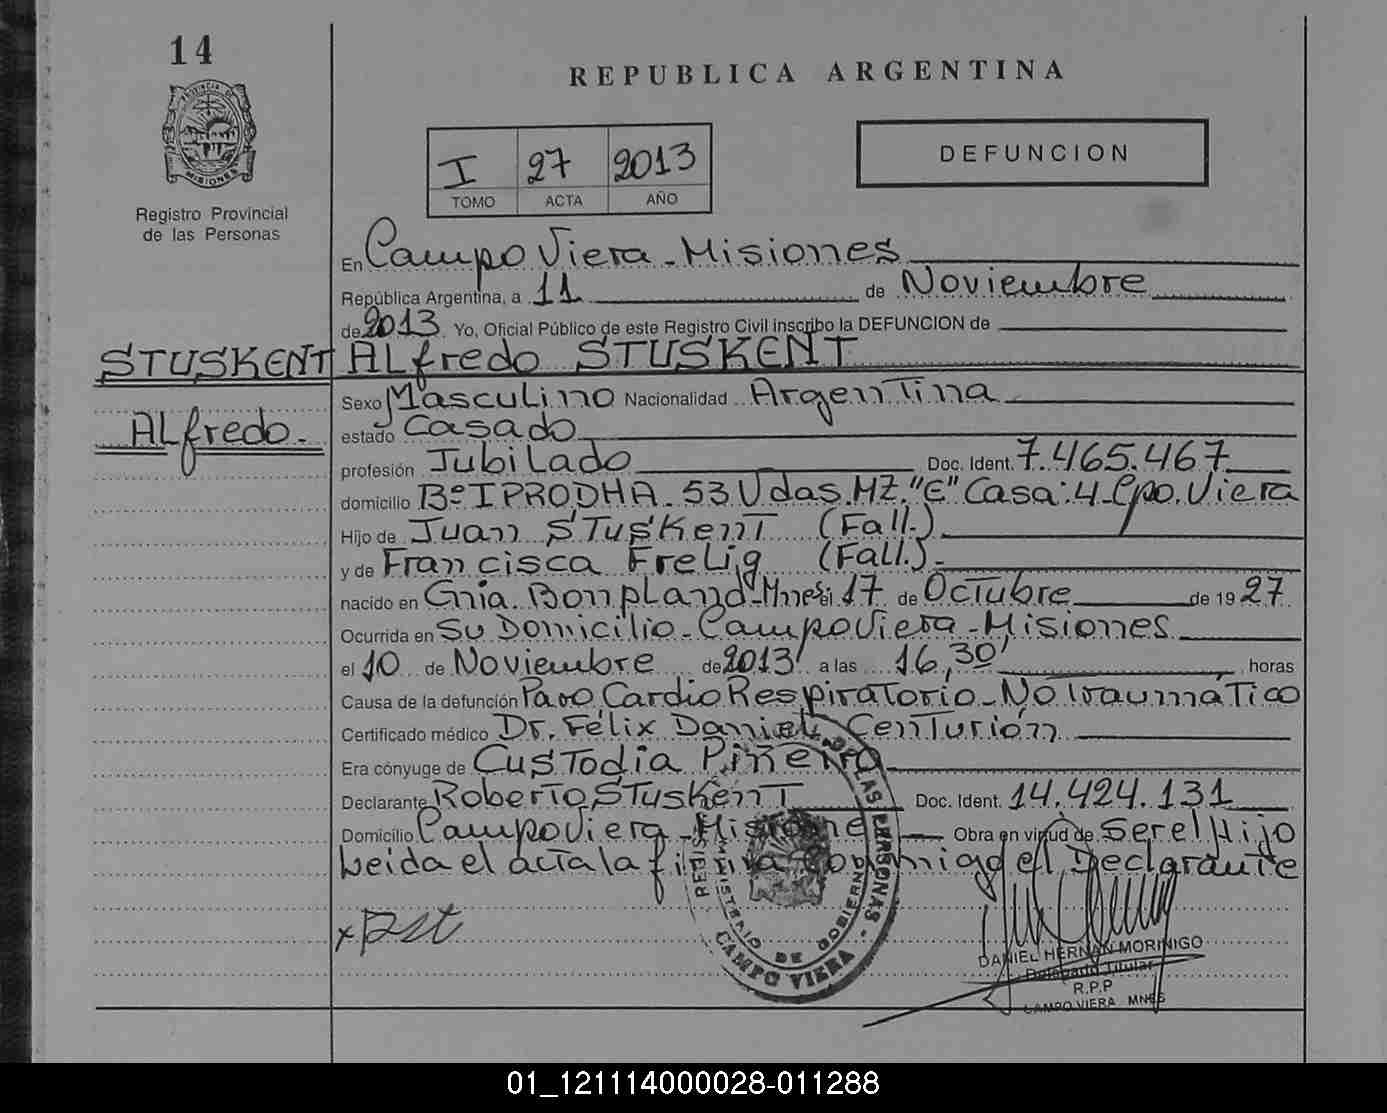 14
PROVINCIA DE
MISIONES
Registro Provincial
de las Personas
REPUBLICA ARGENTINA
I 27 2013
TOMO ACTA AÑO
DEFUNCION
En Campo Viera - Misiones
República Argentina, a 11 de Noviembre
de 2013 Yo, Oficial Público de este Registro Civil inscribo la DEFUNCION de
STUSKENT ALfredo STUSKENT
ALfredo.
Sexo MascuLino Nacionalidad Argentina
estado Casado
profesión JubiLado Doc. Ident. 7.465.467
domicilio Bº IPRODHA. 53 Vdas. MZ. "E" Casa: 4 - Cpo. Viera
Hijo de Juan STusKenT (Fall.)
y de Francisca FreLig (Fall.) -
nacido en Gnia. BonpLand - Mnes el 17 de OcTubre de 19 27
Ocurrida en Su Domicilio - Campo Viera - Misiones
el 10 de Noviembre de 2013 a las 16,30' horas
Causa de la defunción Paro Cardio RespiraTorio - No TraumáTico
Certificado médico Dr. Félix DanieL CenTurión
Era cónyuge de CusTodia Piñeiro
Declarante RoberTo STusKenT Doc. Ident. 14.424.131
Domicilio Campo Viera - Misiones Obra en virtud de Ser el Hijo
Leida el acta la firma conmigo el Declarante
x Rst
REGIS DE LAS PERSONAS - CAMPO VIERA
MINISTERIO DE GOBIERNO
DANIEL HERNAN MORINIGO
Delegado Titular
R.P.P
CAMPO VIERA MNES
01_121114000028-011288